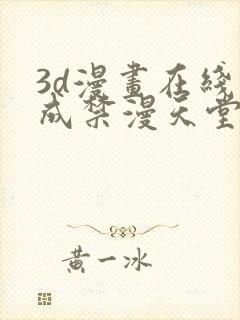 3d漫畫在綫
成禁漫天堂
黃一冰